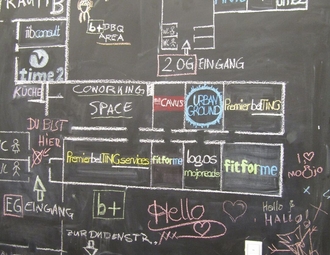 fitconsult
time2
KÜCHE
b+ DBQ
AREA
2.OG EINGANG
COWORKING
SPACE
CANVUS
URBAN
GROUND
PremierbeTING
DU BIST
HIER
PremierbeTING.services
fitforme
logos
mojoreads
fitforme
EG EINGANG
b+
Hello
I ♡
mojo
Hallo &
HALLO!
ZUR DUDENSTR.